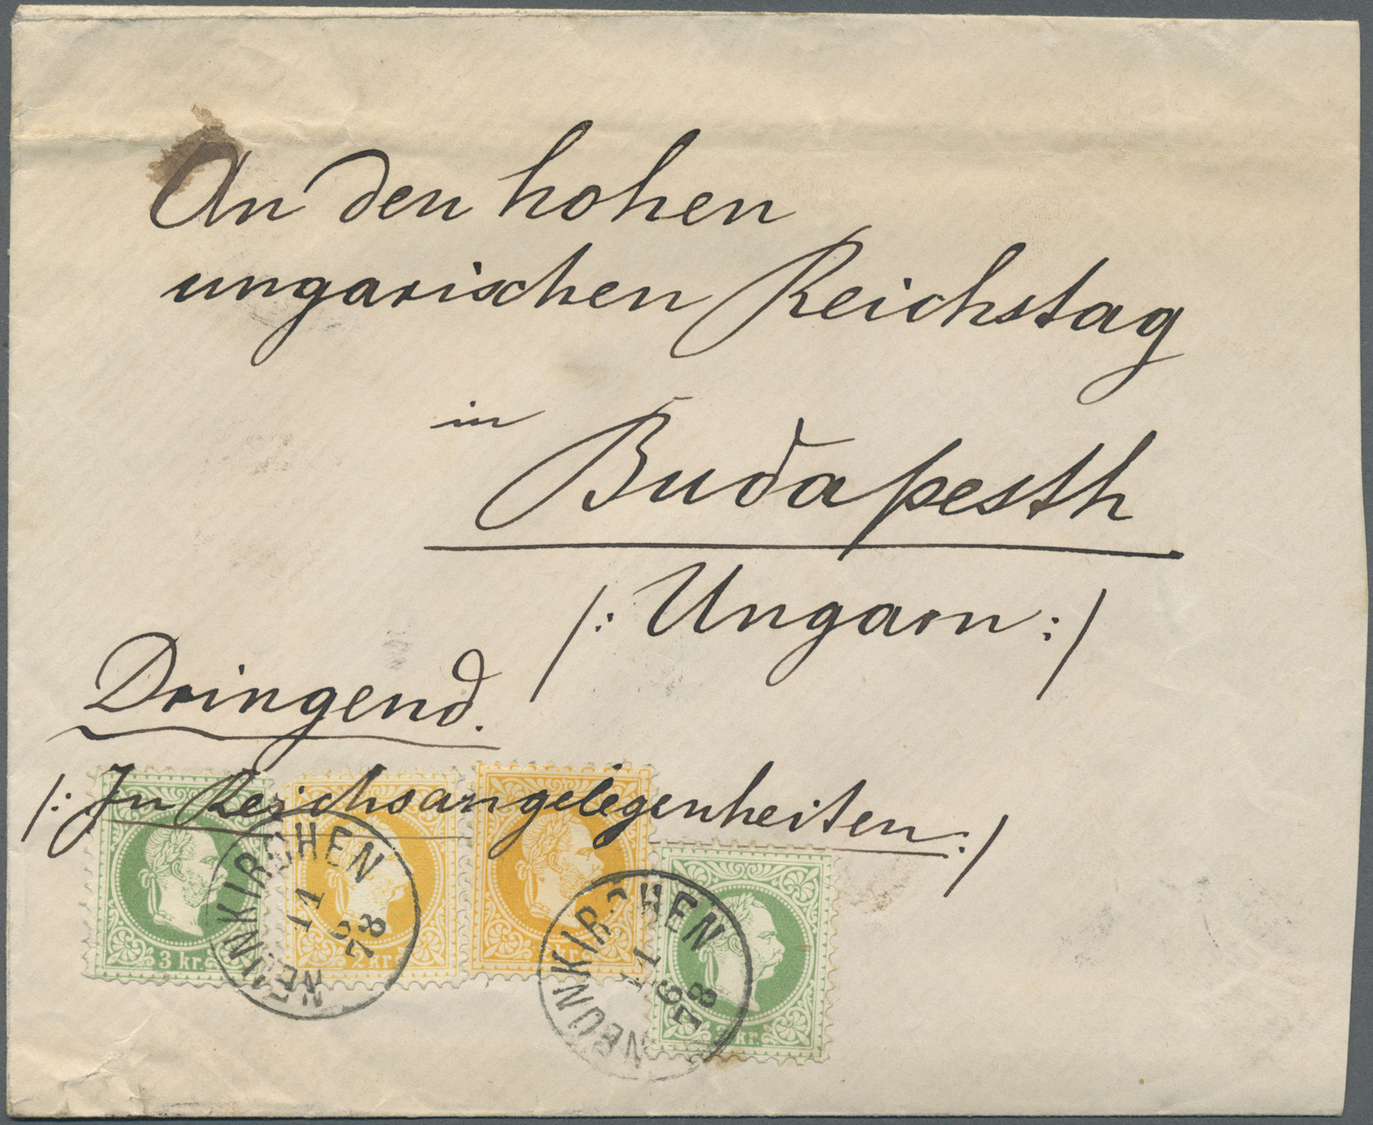 An den hohen
ungarischen Reichstag
in
Budapesth
/: Ungarn :/
Dringend.
/: In Reichsangelegenheiten :/
3 kr.
2 kr.
kr.
kr.
NEUNKIRCHEN
11
NEUNKIRCHEN